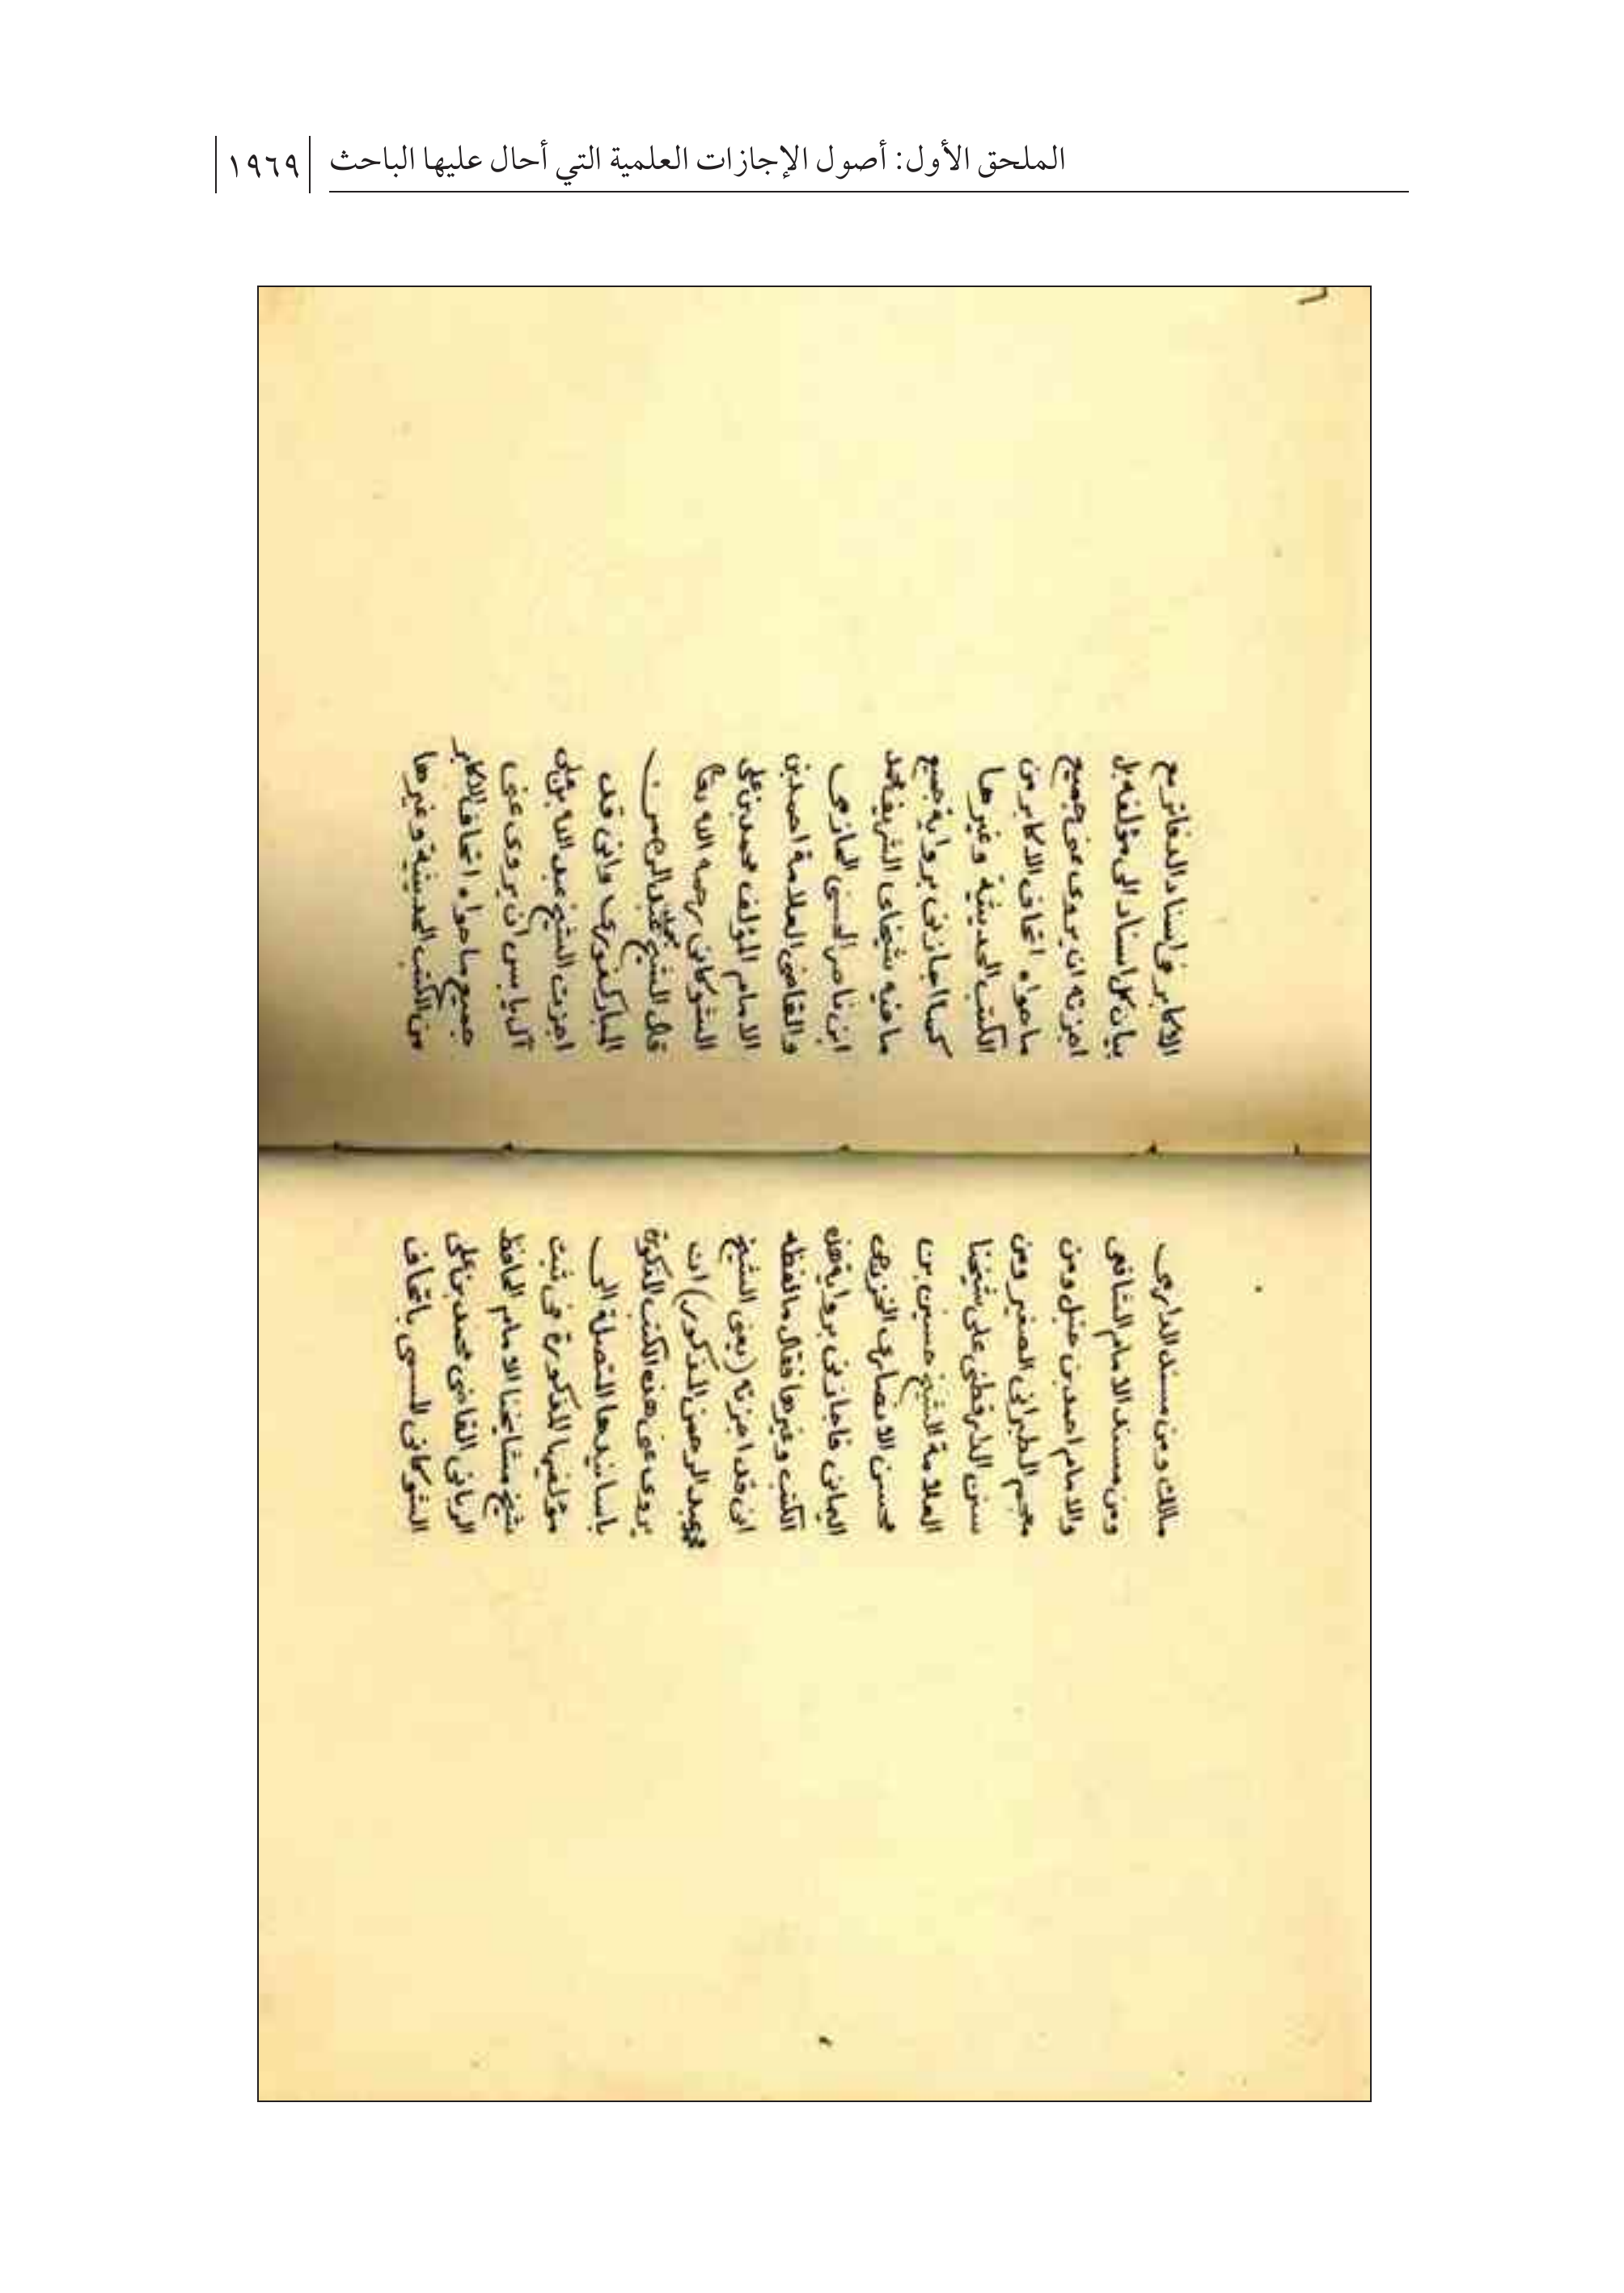 الملحق الأول: أصول الإجازات العلمية التي أحال عليها الباحث ١٩٦٩
مالك ومن مسند الدارمى
ومن مسند الامام الشافعى
والامام احمد بن حنبل ومن
معجم الطبرانى الصغير ومن
سنن الدارقطنى على شيخنا
العلامة الشيخ حسين بن
محسن الانصارى الخزرجى
اليمانى فاجازنى برواية هذه
الكتب وغيرها فقال ما لفظه
انى قد اجزته (يعنى الشيخ
محمد عبد الرحمن المذكور) ان
يروى عنى هذه الكتب المذكورة
باسانيدها المتصلة الى
مؤلفيها المذكورة فى ثبت
شيخ مشايخنا الامام الحافظ
الربانى القاضى محمد بن على
الشوكانى المسمى باتحاف
٦
الاكابر فى اسناد الدفاتر مع
بيان كل اسناد الى مؤلفه بل
اجزته ان يروى عنى جميع
ما حواه اتحاف الاكابر من
الكتب الحديثية وغيرها
كما اجازنى برواية جميع
ما فيه شيخاى الشريف محمد
ابن ناصر الحسنى الحازمى
والقاضى العلامة احمد بن
الامام المؤلف محمد بن على
الشوكانى رحمه الله تعا
قال الشيخ محمد عبد الرحمن
المباركفورى وانى قد
اجزت الشيخ عبد الله بن على
آل يابس ان يروى عنى
جميع ما حواه اتحاف الاكابر
من الكتب الحديثية وغيرها